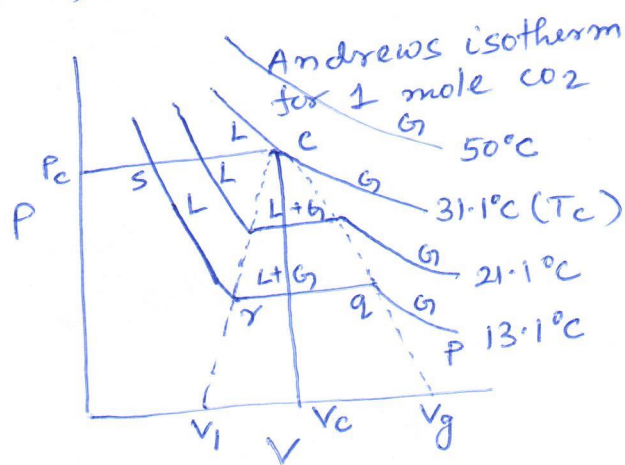 Andrews isotherm
for 1 mole CO2
G
50°C
L
C
Pc
S
L
G
31.1°C (Tc)
P
L
L+G
G
21.1°C
L+G
r
q
G
P 13.1°C
V1
V
Vc
Vg